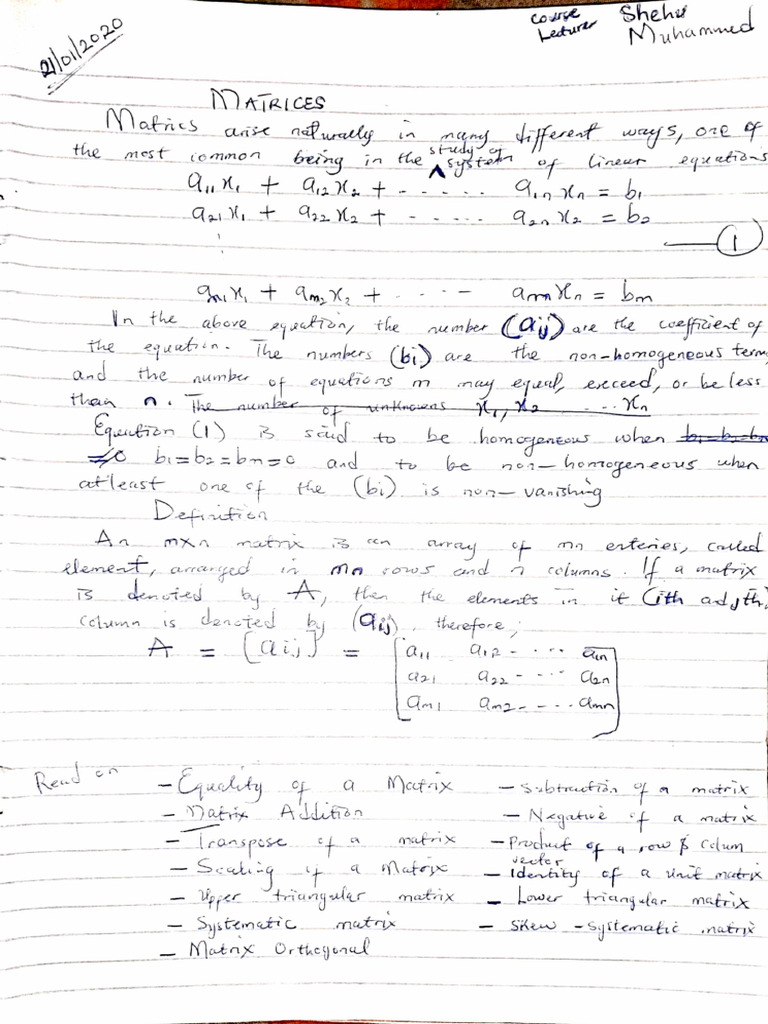 21/01/2020
Course Lecturer Shehu Muhammed
MATRICES
Matrics arise naturally in many different ways, one of
the most common being in the study of system of linear equations
a11x1 + a12x2 + - ..... a1nxn = b1
a21x1 + a22x2 + ..... a2nx2 = b2
1
am1x1 + am2x2 + - ... - amnxn = bm
In the above equation, the number (aij) are the coefficient of
the equation. The numbers (bi) are the non-homogeneous term,
and the number of equations m may equal, exceed, or be less
than n. The number of unknowns x1, x2 ..... xn
Equation (1) is said to be homogeneous when b1=b2=bm
=0 b1=b2=bm=0 and to be non-homogeneous when
atleast one of the (bi) is non-vanishing
Definition
An mxn matrix is an array of mn enteries, called
element, arranged in mn rows and n columns. If a matrix
is denoted by A, then the elements in it (ith ad jth)
column is denoted by (aij). therefore;
A = [aij] = [a11 a12 - ... a1n
a21 a22 - ... a2n
am1 am2 - - ... amn]
Read on
- Equality of a Matrix - Subtraction of a matrix
- Matrix Addition - Negative of a matrix
- Transpose of a matrix - Product of a row & colum vector
- Scaling of a Matrix - Identity of a unit matrix
- Upper triangular matrix - Lower triangular matrix
- Systematic matrix - Skew-systematic matrix
- Matrix Orthogonal